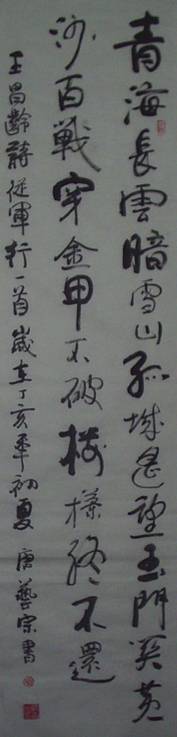 青海長雲暗雪山孤城遥望玉門関黄
沙百戦穿金甲不破楼蘭終不還
王昌齡詩從軍行一首歳在丁亥年初夏 唐藝宗書